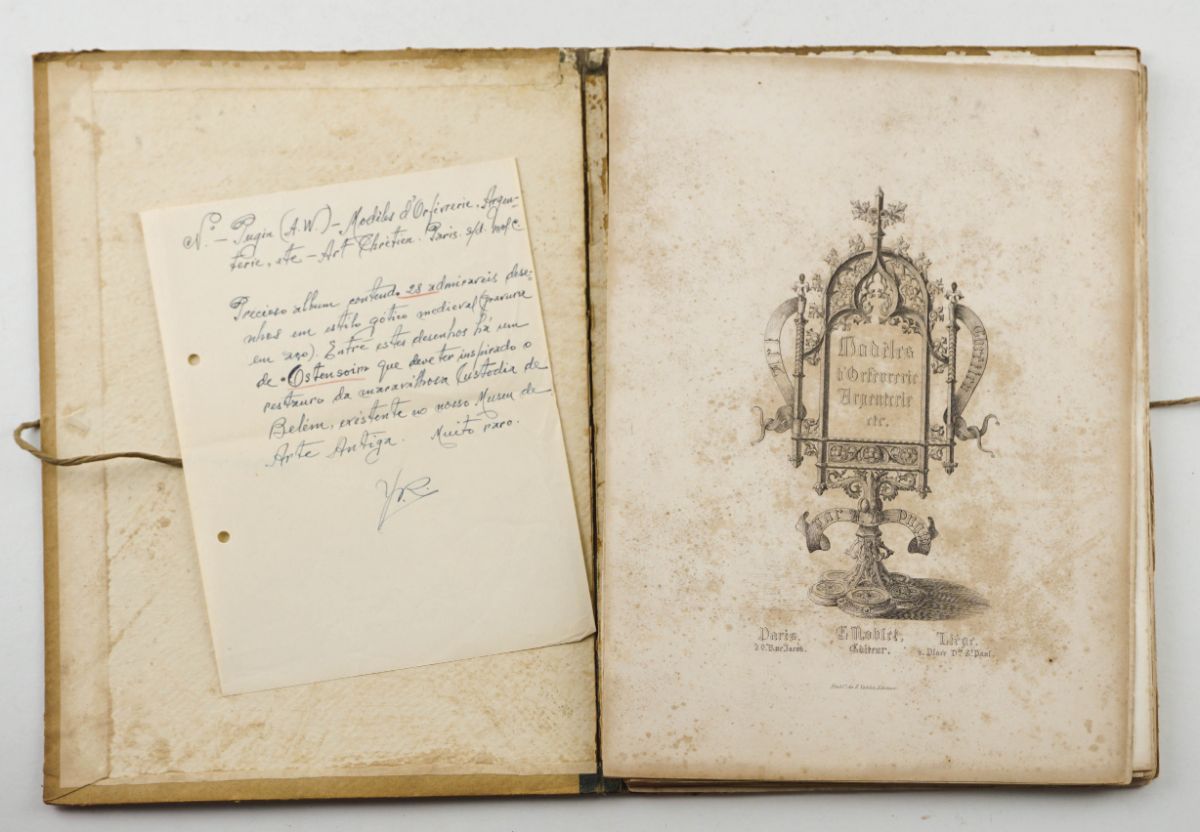 Nº. — Pugin (A.W.) — Modèles d'Orfèvrerie, Argen-
terie, etc — Art Chrétien. Paris. s/d.
Precioso album contendo 28 admiraveis dese-
nhos em estilo gótico medieval (gravura
em aço). Entre estes desenhos há um
de Ostensoir que deve ter inspirado o
restauro da maravilhosa Custodia de
Belém, existente no nosso Museu de
Arte Antiga. Muito raro.
Art Chrétien
Modèles
d'Orfèvrerie
Argenterie
etc.
par Pugin
Paris. E. Noblet, Liège.
Rue Jacob. Editeur. Place Dre. St. Paul.